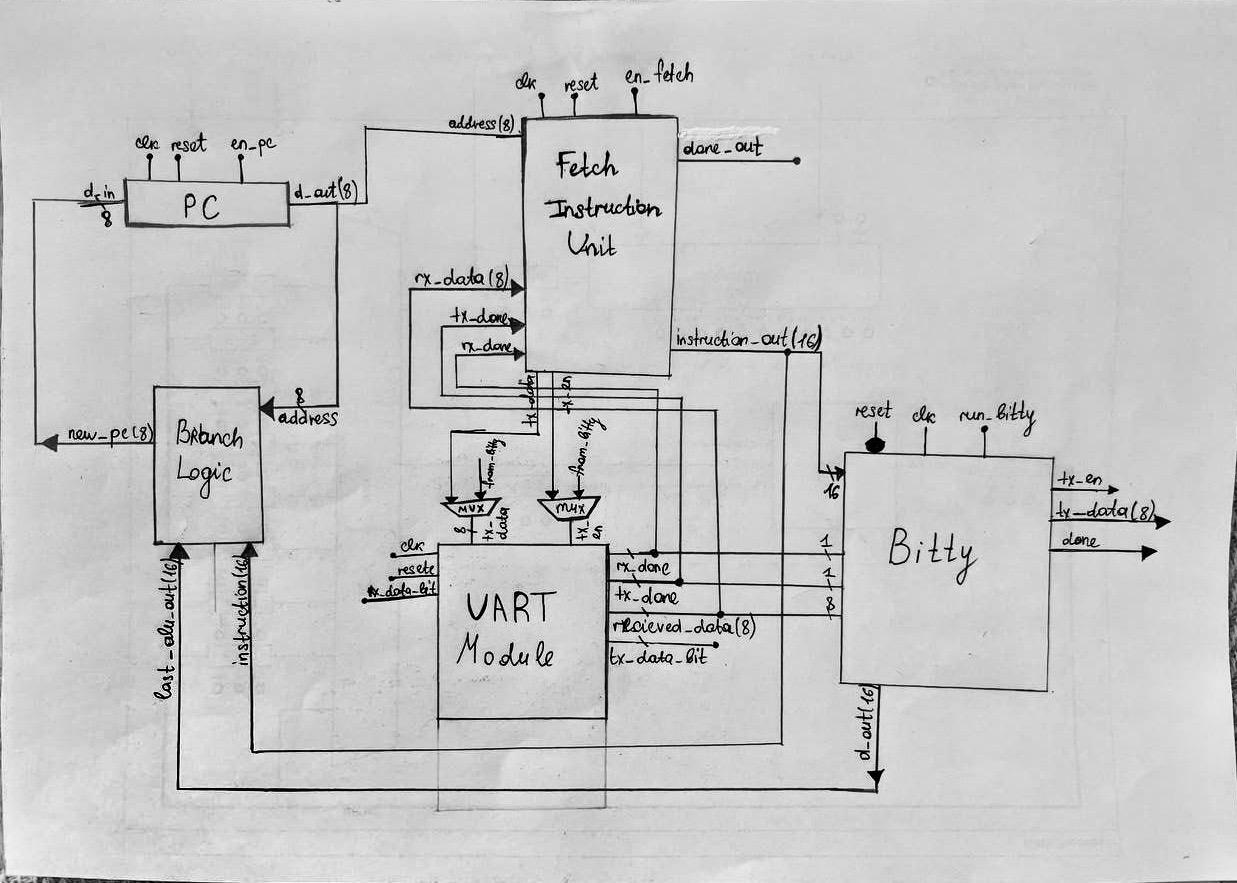 clk reset en_fetch
address(8)
done_out
Fetch
Instruction
Unit
clk reset en_pc
d_in
8
PC
d_out(8)
rx_data(8)
tx_done
rx_done
instruction_out(16)
tx_data
tx_en
8
address
new_pc(8)
Branch
Logic
from_bitty
from_bitty
MUX
MUX
8
tx_data
tx_en
reset clk run_bitty
16
tx_en
tx_data(8)
done
Bitty
clk
resete
rx_data_bit
UART
Module
rx_done
1
tx_done
1
recieved_data(8)
8
tx_data_bit
last_alu_out(16)
instruction(16)
d_out(16)